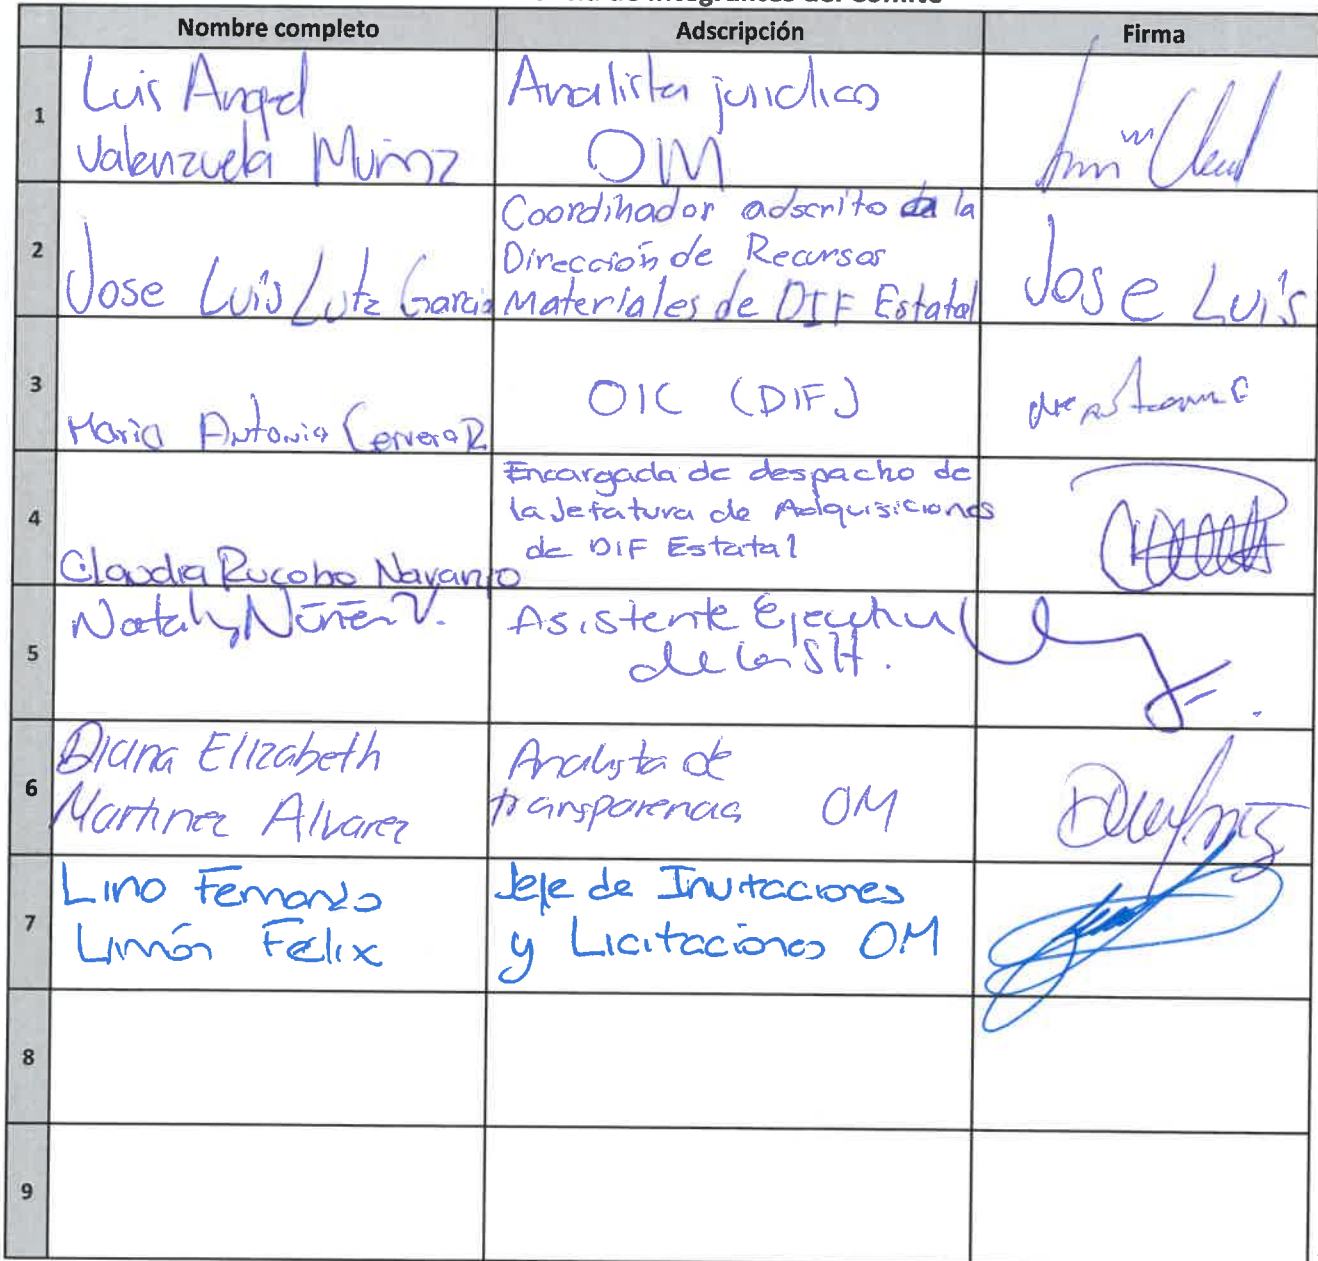 de Integrantes del Comité
Nombre completo Adscripción Firma
1
Luis Angel
Valenzuela Muñoz
Analista juridico
OM
2
Jose Luis Lutz Garcia
Coordinador adscrito a la
Dirección de Recursos
Materiales de DIF Estatal
Jose Luis
3
Maria Antonia Cervera R
OIC (DIF)
4
Claudia Rucobo Naranjo
Encargada de despacho de
la Jefatura de Adquisiciones
de DIF Estatal
5
Nataly Núñez V.
Asistente Ejecutiv
de la SH.
6
Diana Elizabeth
Martinez Alvarez
Analista de
transparencia OM
7
Lino Fernando
Limón Félix
Jefe de Invitaciones
y Licitaciones OM
8
9